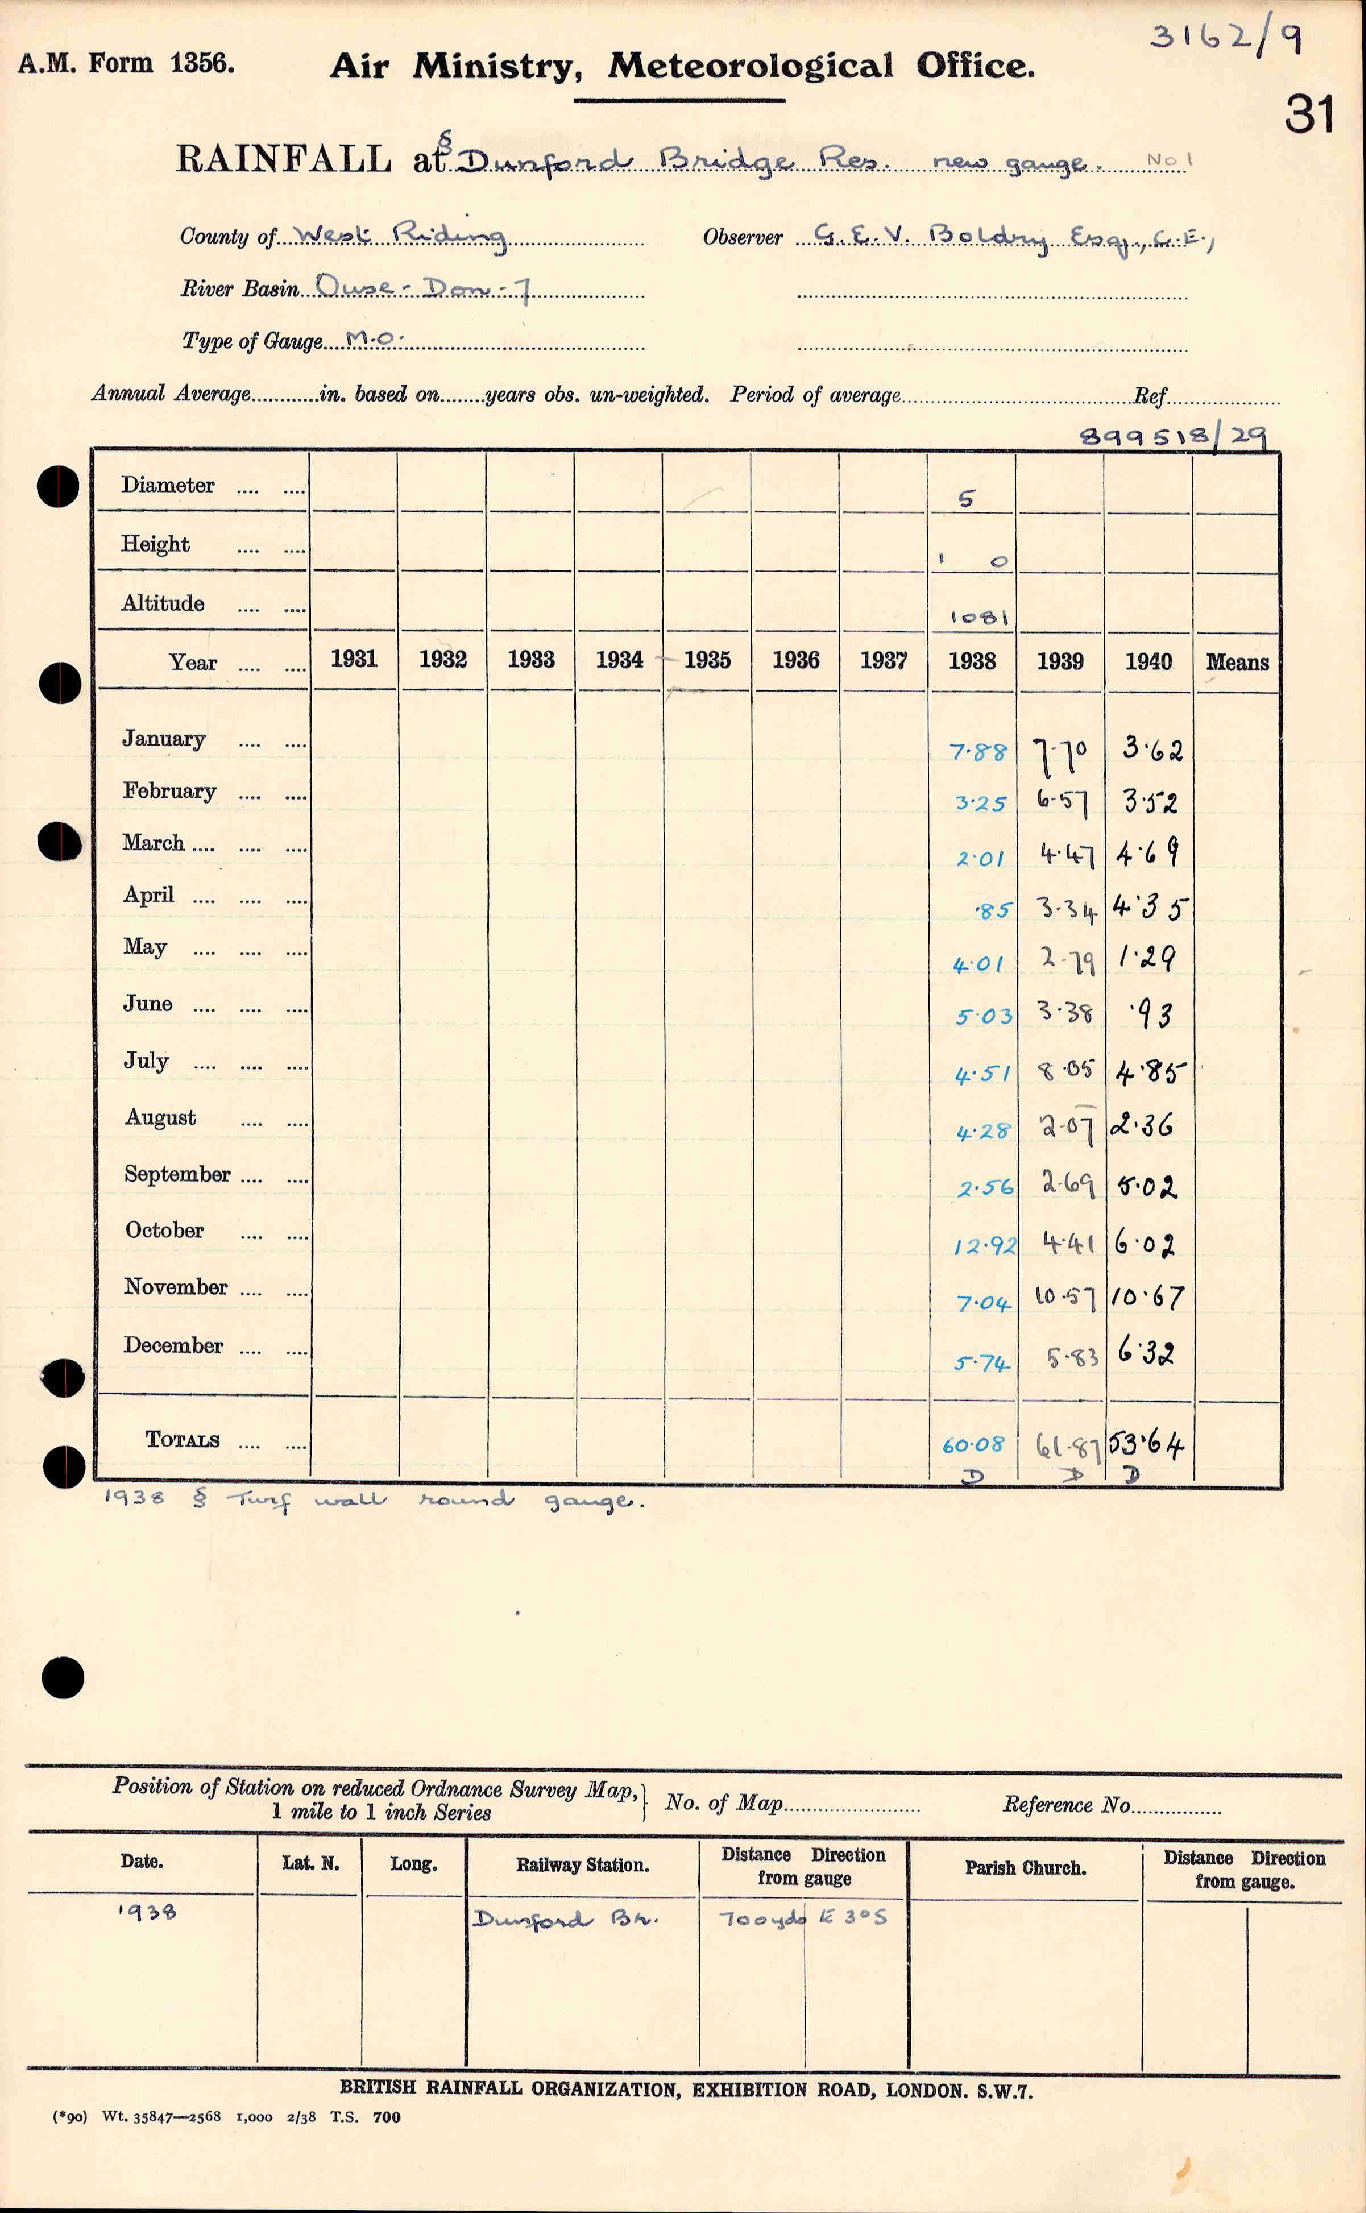 3162/9
A.M. Form 1356. Air Ministry, Meteorological Office.
31
RAINFALL at § Dunford Bridge Res. new gauge. No 1
County of West Riding Observer G. E. V. Boldry Esq., C.E.,
River Basin Ouse - Don - 7
Type of Gauge M.O.
Annual Average............in. based on........years obs. un-weighted. Period of average.................... Ref...............
899518/29
Diameter .... .... 5
Height .... .... 1 0
Altitude .... .... 1081
Year .... .... 1931 1932 1933 1934 1935 1936 1937 1938 1939 1940 Means
January .... .... 7·88 7·70 3·62
February .... .... 3·25 6·57 3·52
March .... .... .... 2·01 4·47 4·69
April .... .... .... ·85 3·34 4·35
May .... .... .... 4·01 2·79 1·29
June .... .... .... 5·03 3·38 ·93
July .... .... .... 4·51 8·05 4·85
August .... .... 4·28 2·07 2·36
September .... .... 2·56 2·69 5·02
October .... .... 12·92 4·41 6·02
November .... .... 7·04 10·57 10·67
December .... .... 5·74 5·83 6·32
TOTALS .... .... 60·08 61·87 53·64
D D D
1938 § Turf wall round gauge.
Position of Station on reduced Ordnance Survey Map,
1 mile to 1 inch Series } No. of Map........................ Reference No................
Date. Lat. N. Long. Railway Station. Distance Direction from gauge Parish Church. Distance Direction from gauge.
1938 Dunford Br. 700yds E 30 S
BRITISH RAINFALL ORGANIZATION, EXHIBITION ROAD, LONDON. S.W.7.
(*90) Wt. 35847—2568 1,000 2/38 T.S. 700